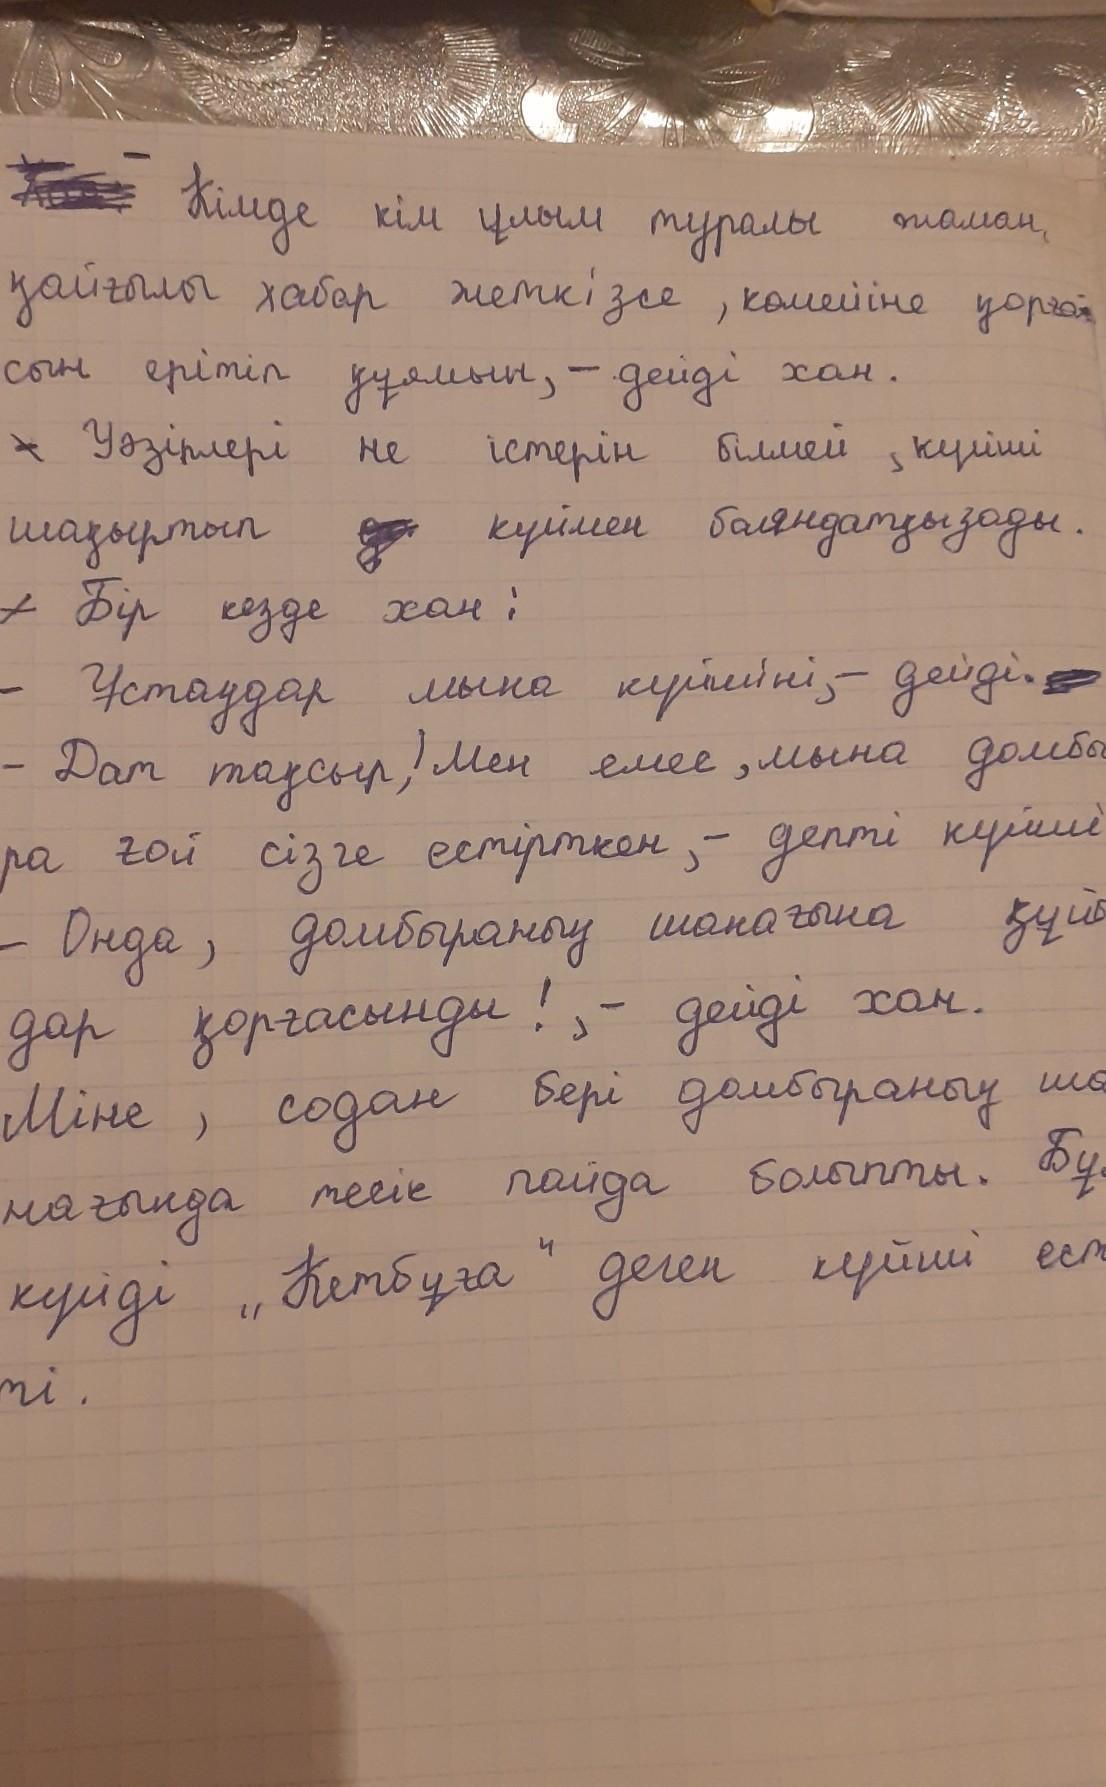 – Кімде кім ұлым туралы жаман,
қайғылы хабар жеткізсе, көмейіне қорға
сын ерітіп құямын, – дейді хан.
Уәзірлері не істерін білмей, күйші
шақыртып күймен баяндатқызады.
Бір кезде хан:
– Ұстаудар мына күйшіні, – дейді.
– Дат тақсыр! Мен емес, мына домбы
ра ғой сізге естірткен, – депті күйші
– Онда, домбыраның шанағына құй
дар қорғасынды!, – дейді хан.
Міне, содан бері домбыраның ша
нағында тесік пайда болыпты. Бұл
күйді „Кетбұға" деген күйші ест
ті.